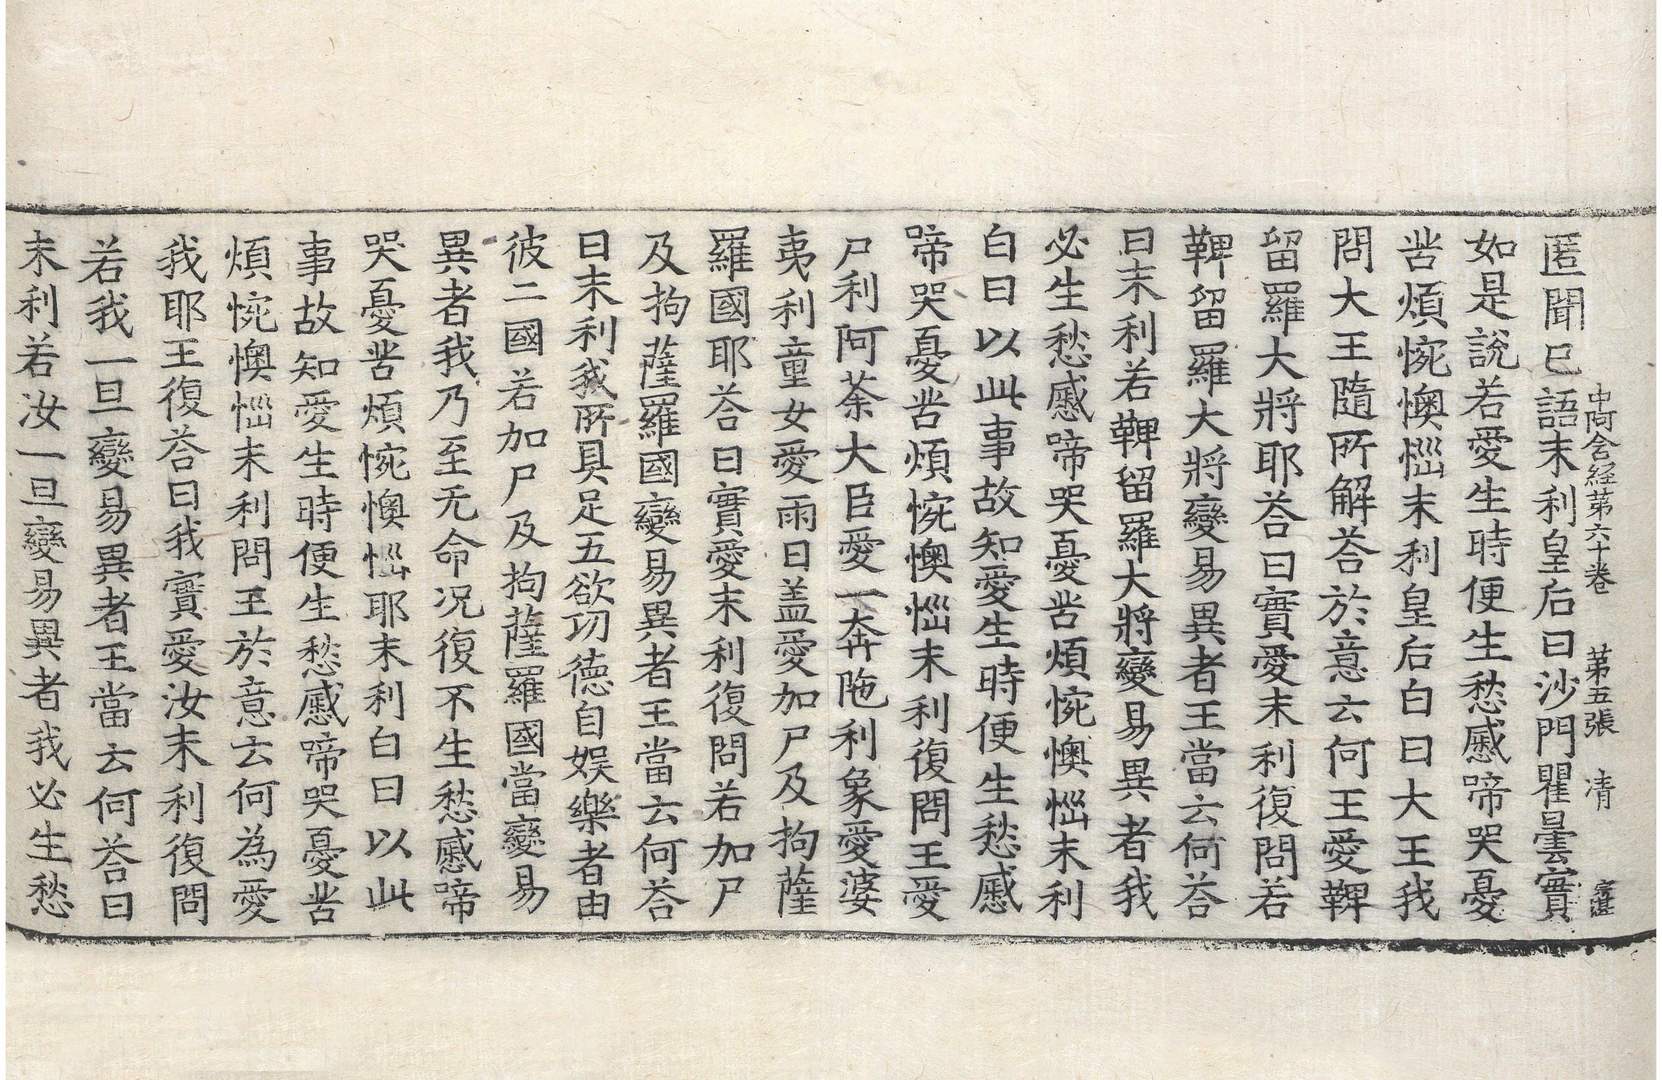 中阿含経苐六十卷 苐五張 清
匿聞已語末利皇后曰沙門瞿曇實
如是說若愛生時便生愁慼啼哭憂
苦煩惋懊惱末利皇后白曰大王我
問大王隨所解荅於意云何王愛鞞
留羅大將耶荅曰實愛末利復問若
鞞留羅大將變易異者王當云何荅
曰末利若鞞留羅大將變易異者我
必生愁慼啼哭憂苦煩惋懊惱末利
白曰以此事故知愛生時便生愁慼
啼哭憂苦煩惋懊惱末利復問王愛
尸利阿荼大臣愛一奔陁利象愛婆
夷利童女愛雨日盖愛加尸及拘薩
羅國耶荅曰實愛末利復問若加尸
及拘薩羅國變易異者王當云何荅
曰末利我所具足五欲功德自娛樂者由
彼二國若加尸及拘薩羅國當變易
異者我乃至无命况復不生愁慼啼
哭憂苦煩惋懊惱耶末利白曰以此
事故知愛生時便生愁慼啼哭憂苦
煩惋懊惱末利問王於意云何為愛
我耶王復荅曰我實愛汝末利復問
若我一旦變易異者王當云何荅曰
末利若汝一旦變易異者我必生愁